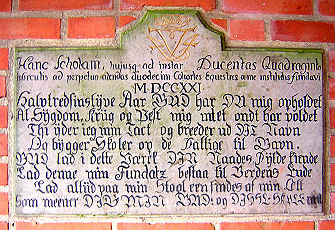 Hanc Scholam, hujusq ad instar Ducentas Quadraginta
ad perpetuo alendas duodecim Cohortes Equestres orne institutas fundavi
MDCCXXI
Halvtredsinstive Aar GUD har DU mig opholdet
At Sygdom, Krig og Pest mig intet ondt har voldet
Thi yder jeg min Tack og breeder ud DIT Navn
Og bygger Skoler op de Fattige til Gavn.
GUD lad i dette Verck DIN Naades Fylde kiende
Lad denne min Fundatz bestaa til Verdens Ende
Lad altiid paa min Stoel een findes af min Ætt
Som meener DIG MIN GUD: og